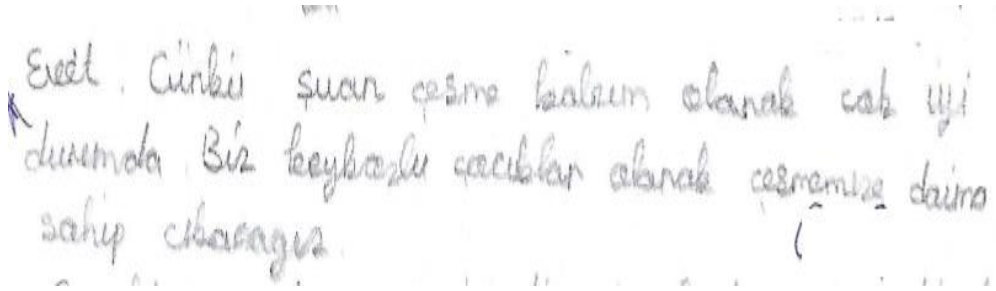 Evet. Cünkü şuan çeşme bakım olarak cok iyi
durumda. Biz beykozlu çocuklar olarak çeşmemize daima
sahip cıkacagız.